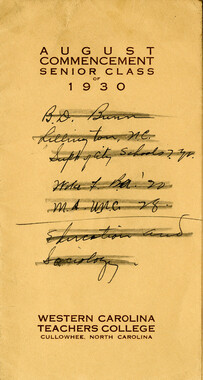 AUGUST
COMMENCEMENT
SENIOR CLASS
OF
1930
B.D. Bunn
Lillington, N.C.
Supt of City Schools 7 yr.
Wake F. B.A. '20
M.A. U.N.C. 28.
Education and
Sociology
WESTERN CAROLINA
TEACHERS COLLEGE
CULLOWHEE, NORTH CAROLINA